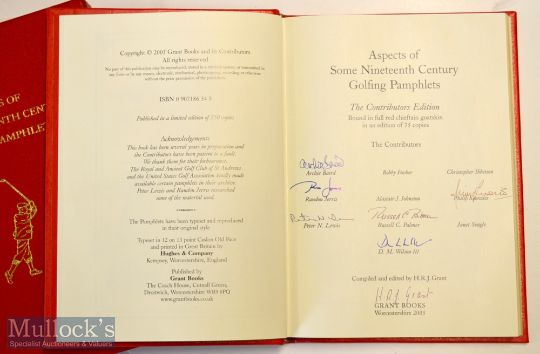 S OF
NTH CENT
PAMPHLET
Copyright © 2007 Grant Books and its Contributors
All rights reserved
No part of this publication may be reproduced, stored in a retrieval system or transmitted in
any form or by any means, electronic, mechanical, photocopying, recording or otherwise
without the prior permission of the publishers.
ISBN 0 907186 54 8
Published in a limited edition of 250 copies
Acknowledgements
This book has been several years in preparation and
the Contributors have been patient to a fault.
We thank them for their forbearance.
The Royal and Ancient Golf Club of St Andrews
and the United States Golf Association kindly made
available certain pamphlets in their archive.
Peter Lewis and Random Jerris researched
some of the material used.
The Pamphlets have been typeset and reproduced
in their original style.
Typeset in 12 on 13 point Caslon Old Face
and printed in Great Britain by
Hughes & Company
Kempsey, Worcester, England
Published by
Grant Books
The Coach House, Cutnall Green,
Droitwich, Worcestershire WR9 0PQ
www.grantbooks.co.uk
Aspects of
Some Nineteenth Century
Golfing Pamphlets
The Contributors Edition
Bound in full red chieftain goatskin
in an edition of 75 copies
The Contributors
Archie Baird
Archie Baird Bobby Furber Christopher Ibbotson
Random Jerris Alastair J. Johnston Philip Knowles
Peter N. Lewis
Peter N. Lewis Russell C. Palmer Janet Seagle
D. M. Wilson III
Compiled and edited by H.R.J. Grant
H.R.J. Grant
GRANT BOOKS
Worcestershire 2003
Mullock's
Specialist Auctioneers & Valuers